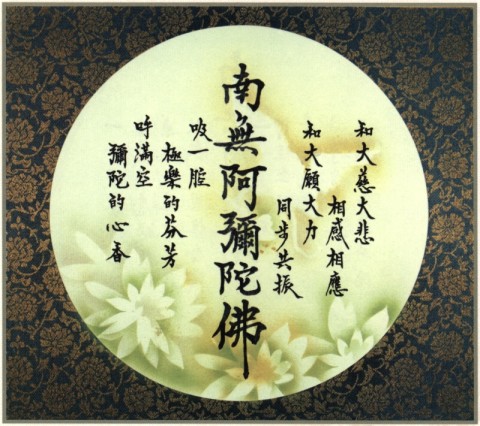 和大慈大悲
相感相應
和大願大力
同步共振
南無阿彌陀佛
吸一腔
極樂的芬芳
呼滿空
彌陀的心香